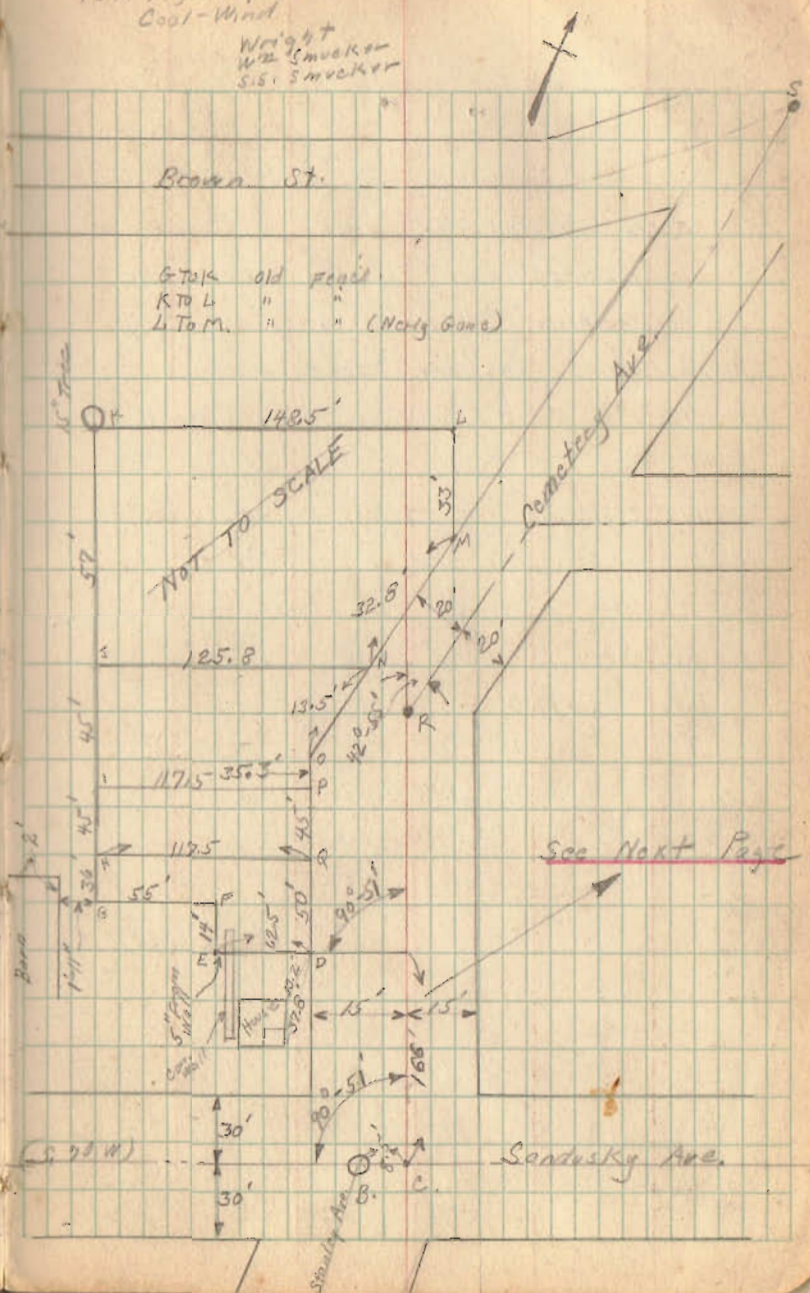 Cool-Wind
Wright
Wm Smucker
S.S. Smucker
S
Brown St.
G To K old fence
K To L " "
L To M. " " (Nerly Gone)
15" Tree
K
148.5'
L
NOT TO SCALE
Cemetery Ave.
33'
M
57'
32.8'
20'
20'
125.8
N
13.5'
42°-55'
R
45'
O
35.3'
117.5
P
45'
45'
117.5
Q
See Next Page
2'
36'
55'
F
G
14'
62.5'
50'
90°-51'
Barn
1'-11"
E
D
5" From Wall
House
37.8'
15'
15'
Con. Wall
166'
90°-51'
30'
(S 70 W)
Sandusky Ave.
B.
C.
30'
Stanley Ave.